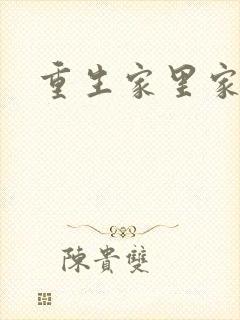 重生家里家
陳貴雙